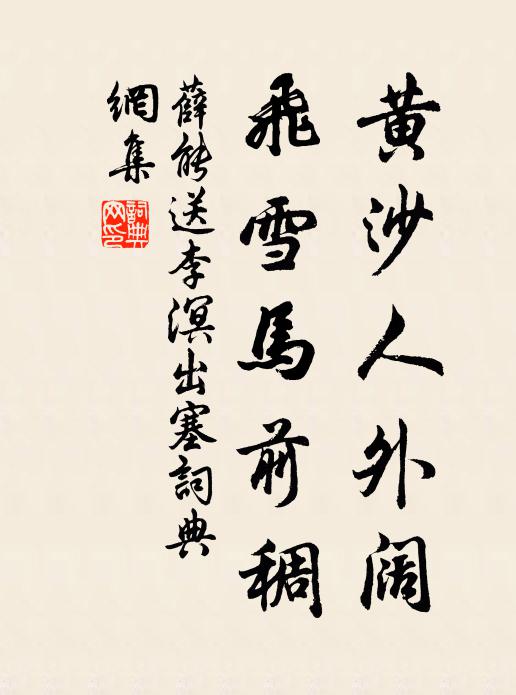 黄沙人外阔
飛雪馬前稠
薛能送李溟出塞詞典
網集
詞典網印